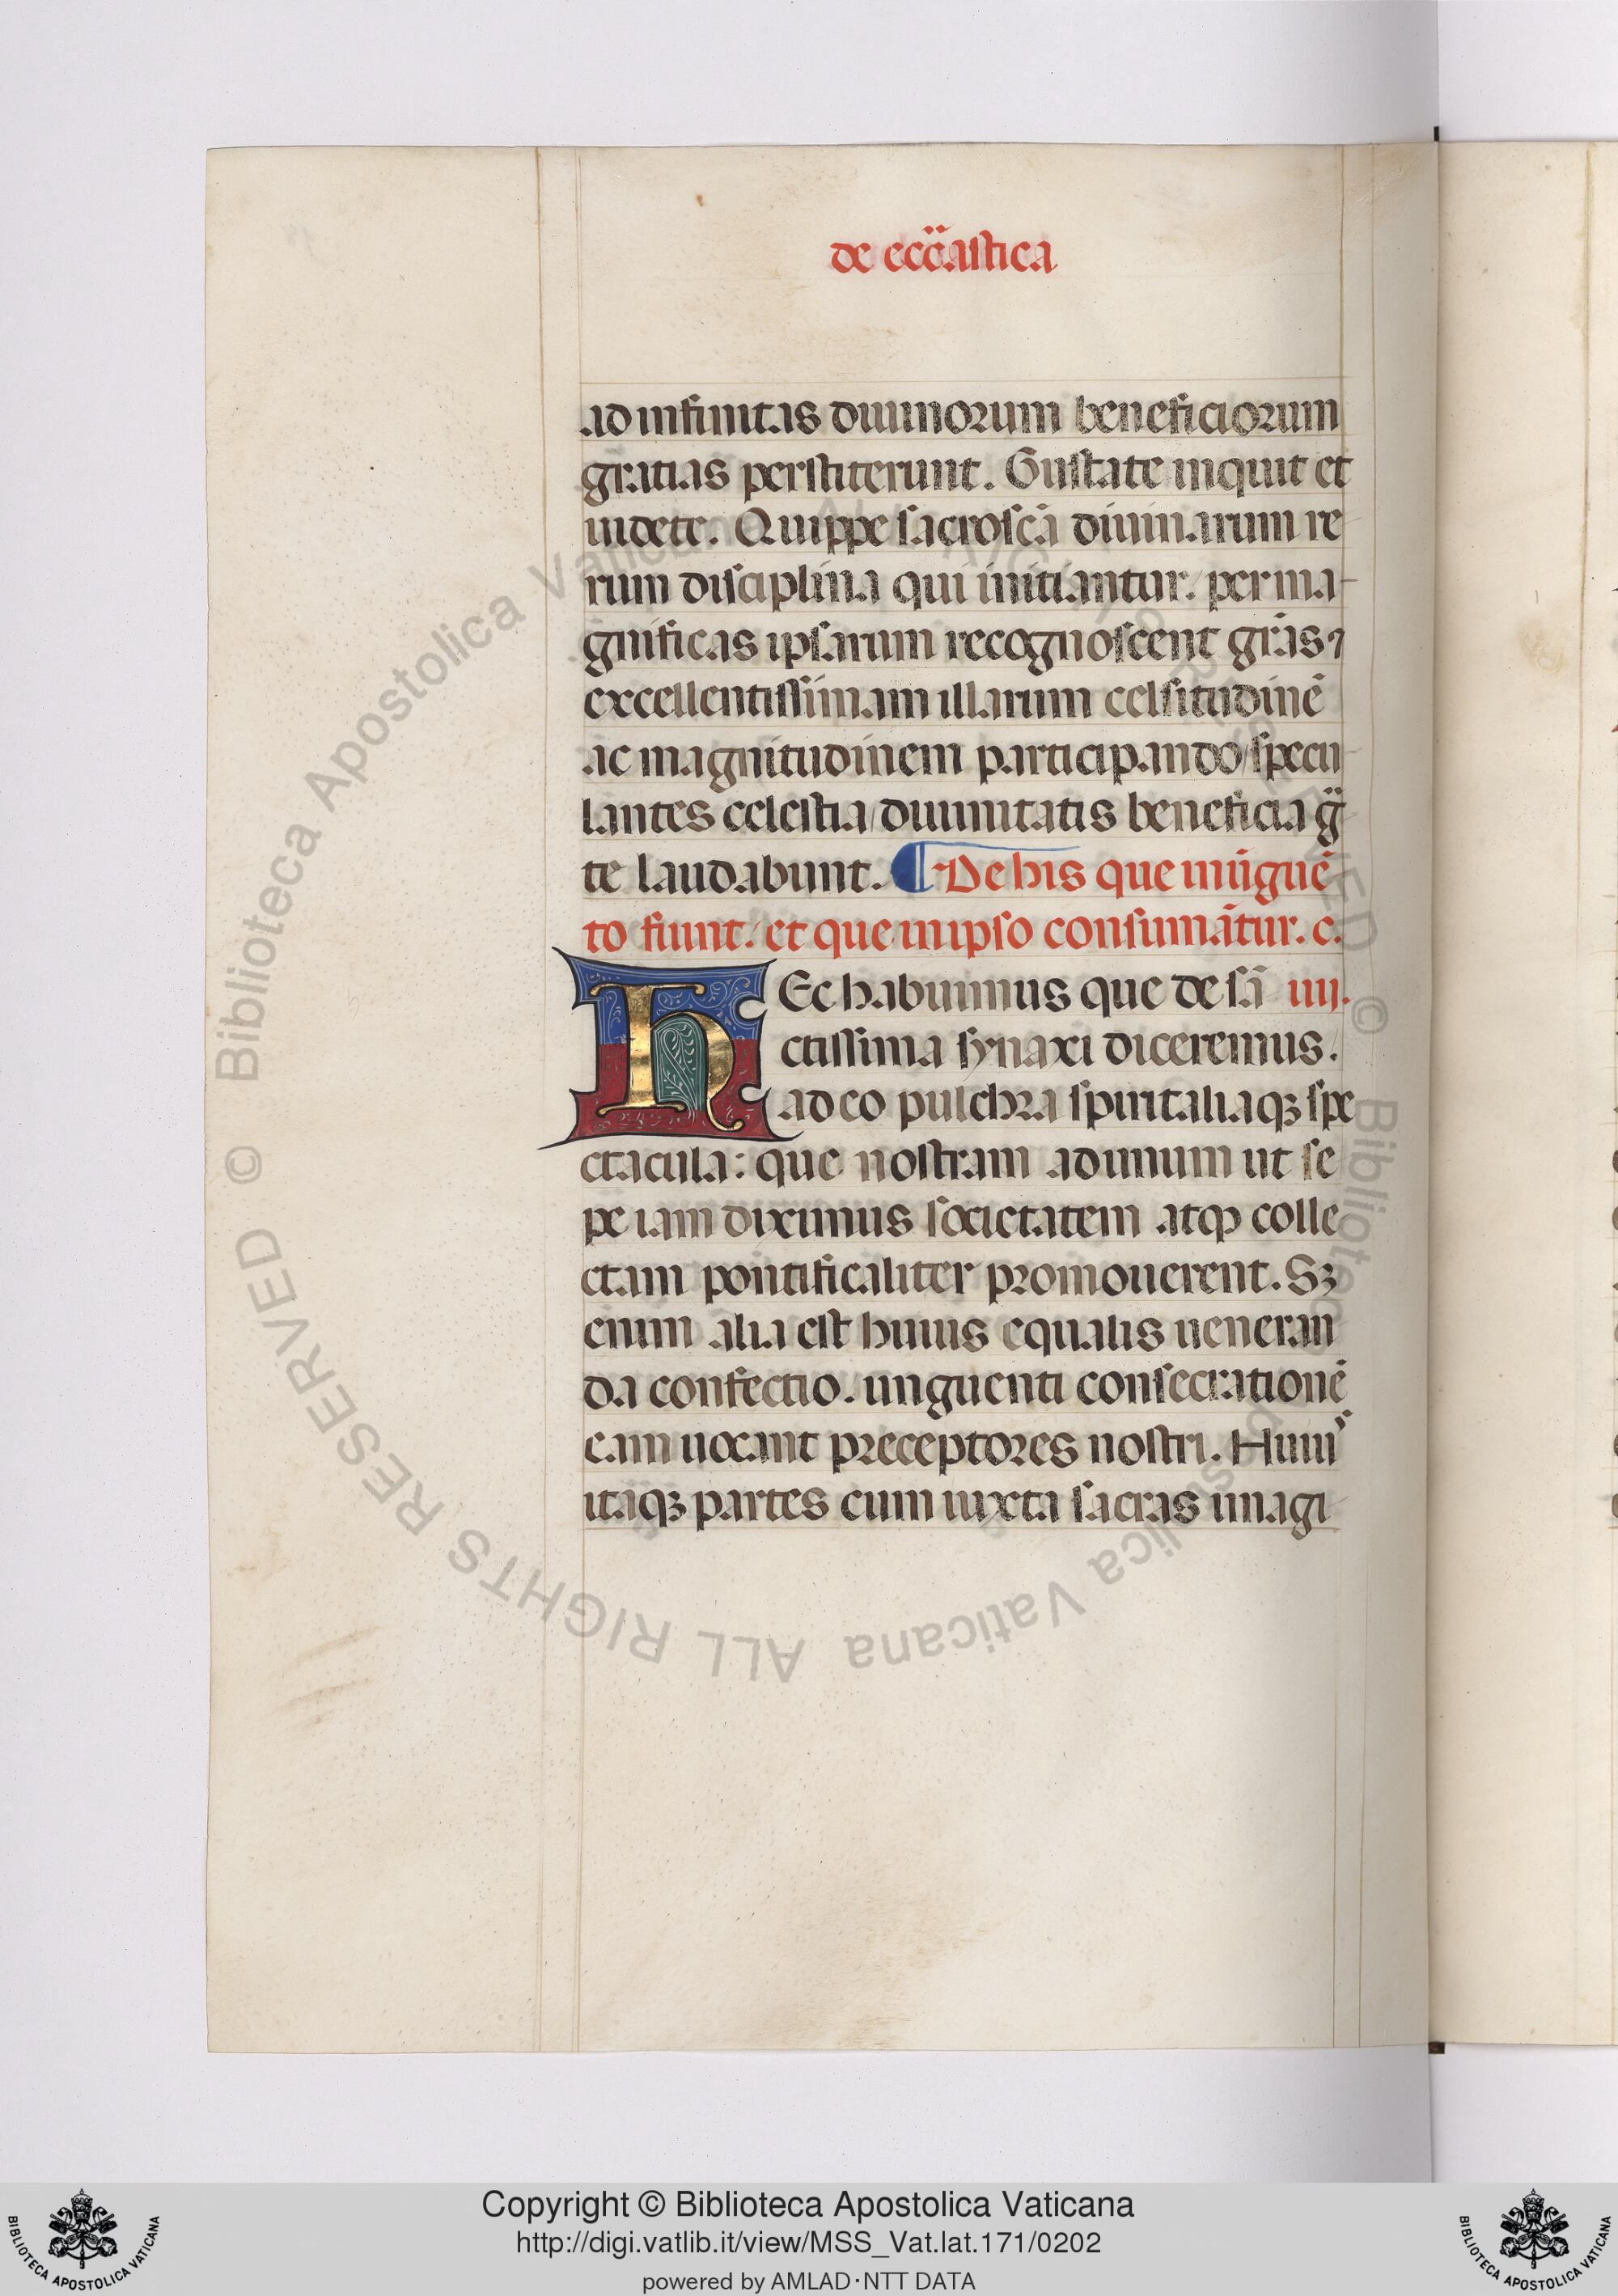 de ecc̈astica
ad infinitas diuinorum beneficiorum
gratias perstiterunt. Gustate inquit et
uidete. Quippe sacrosc̄a diuinarum re
rum disciplina qui initiantur. per ma-
gnificas ipsarum recognoscent gr̄as ⁊
excellentissimam illarum celsitudinē
ac magnitudinem participando/specu
lantes celestia/diuinitatis beneficia g̈
te laudabunt. ¶ De his que in ūguē
to fiunt. et que in ipso consumāt̄ur. c.
HEc habuimus que de sā iiij.
ctissima synaxi diceremus.
adeo pulchra spiritaliaqꝫ spe
ctacula: que nostram ad unum ut se
pe iam diximus societatem atqꝫ colle
ctam pontificaliter promouerent. Sꝫ
enim alia est huius equalis ueneran
da confectio. unguenti consecrationē
eam uocant preceptores nostri. Huiꝰ
itaqꝫ partes cum iuxta sacras imagi
© Biblioteca Apostolica Vaticana ALL RIGHTS RESERVED
Copyright © Biblioteca Apostolica Vaticana
http://digi.vatlib.it/view/MSS_Vat.lat.171/0202
powered by AMLAD·NTT DATA
BIBLIOTECA APOSTOLICA VATICANA
BIBLIOTECA APOSTOLICA VATICANA